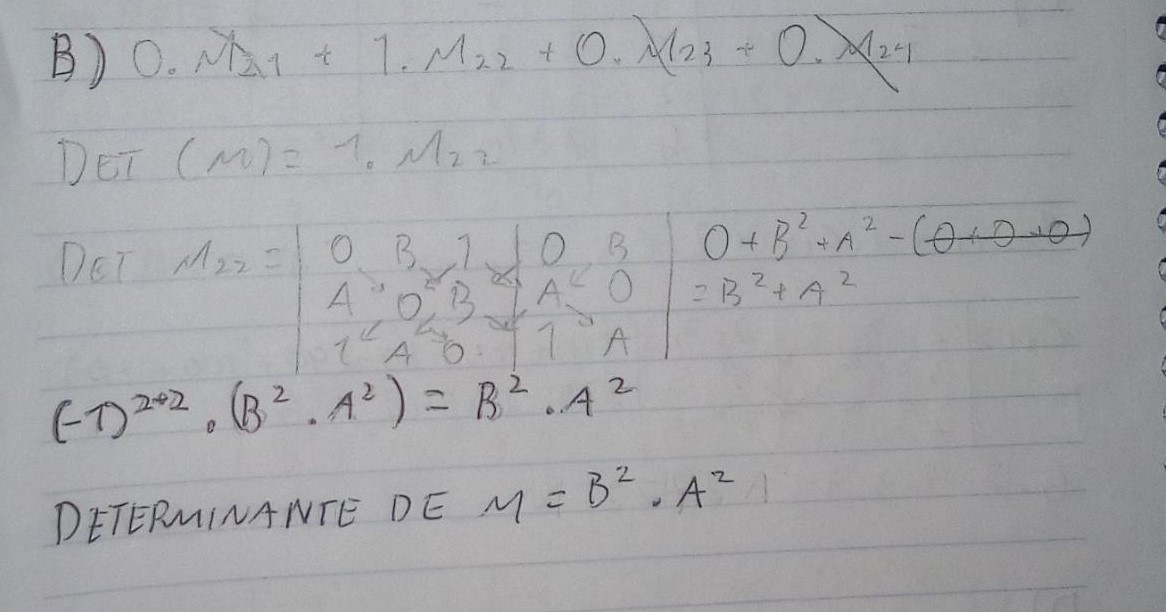 B) 0. M21 + 1. M22 + 0. M23 + 0. M24
DET (M) = 1. M22
DET M22 = | 0 B 1 | 0 B | 0 + B² + A² - (0+0+0)
A 0 B | A 0 | = B² + A²
1 A 0 | 1 A |
(-1)²⁺² . (B² . A²) = B² . A²
DETERMINANTE DE M = B² . A²